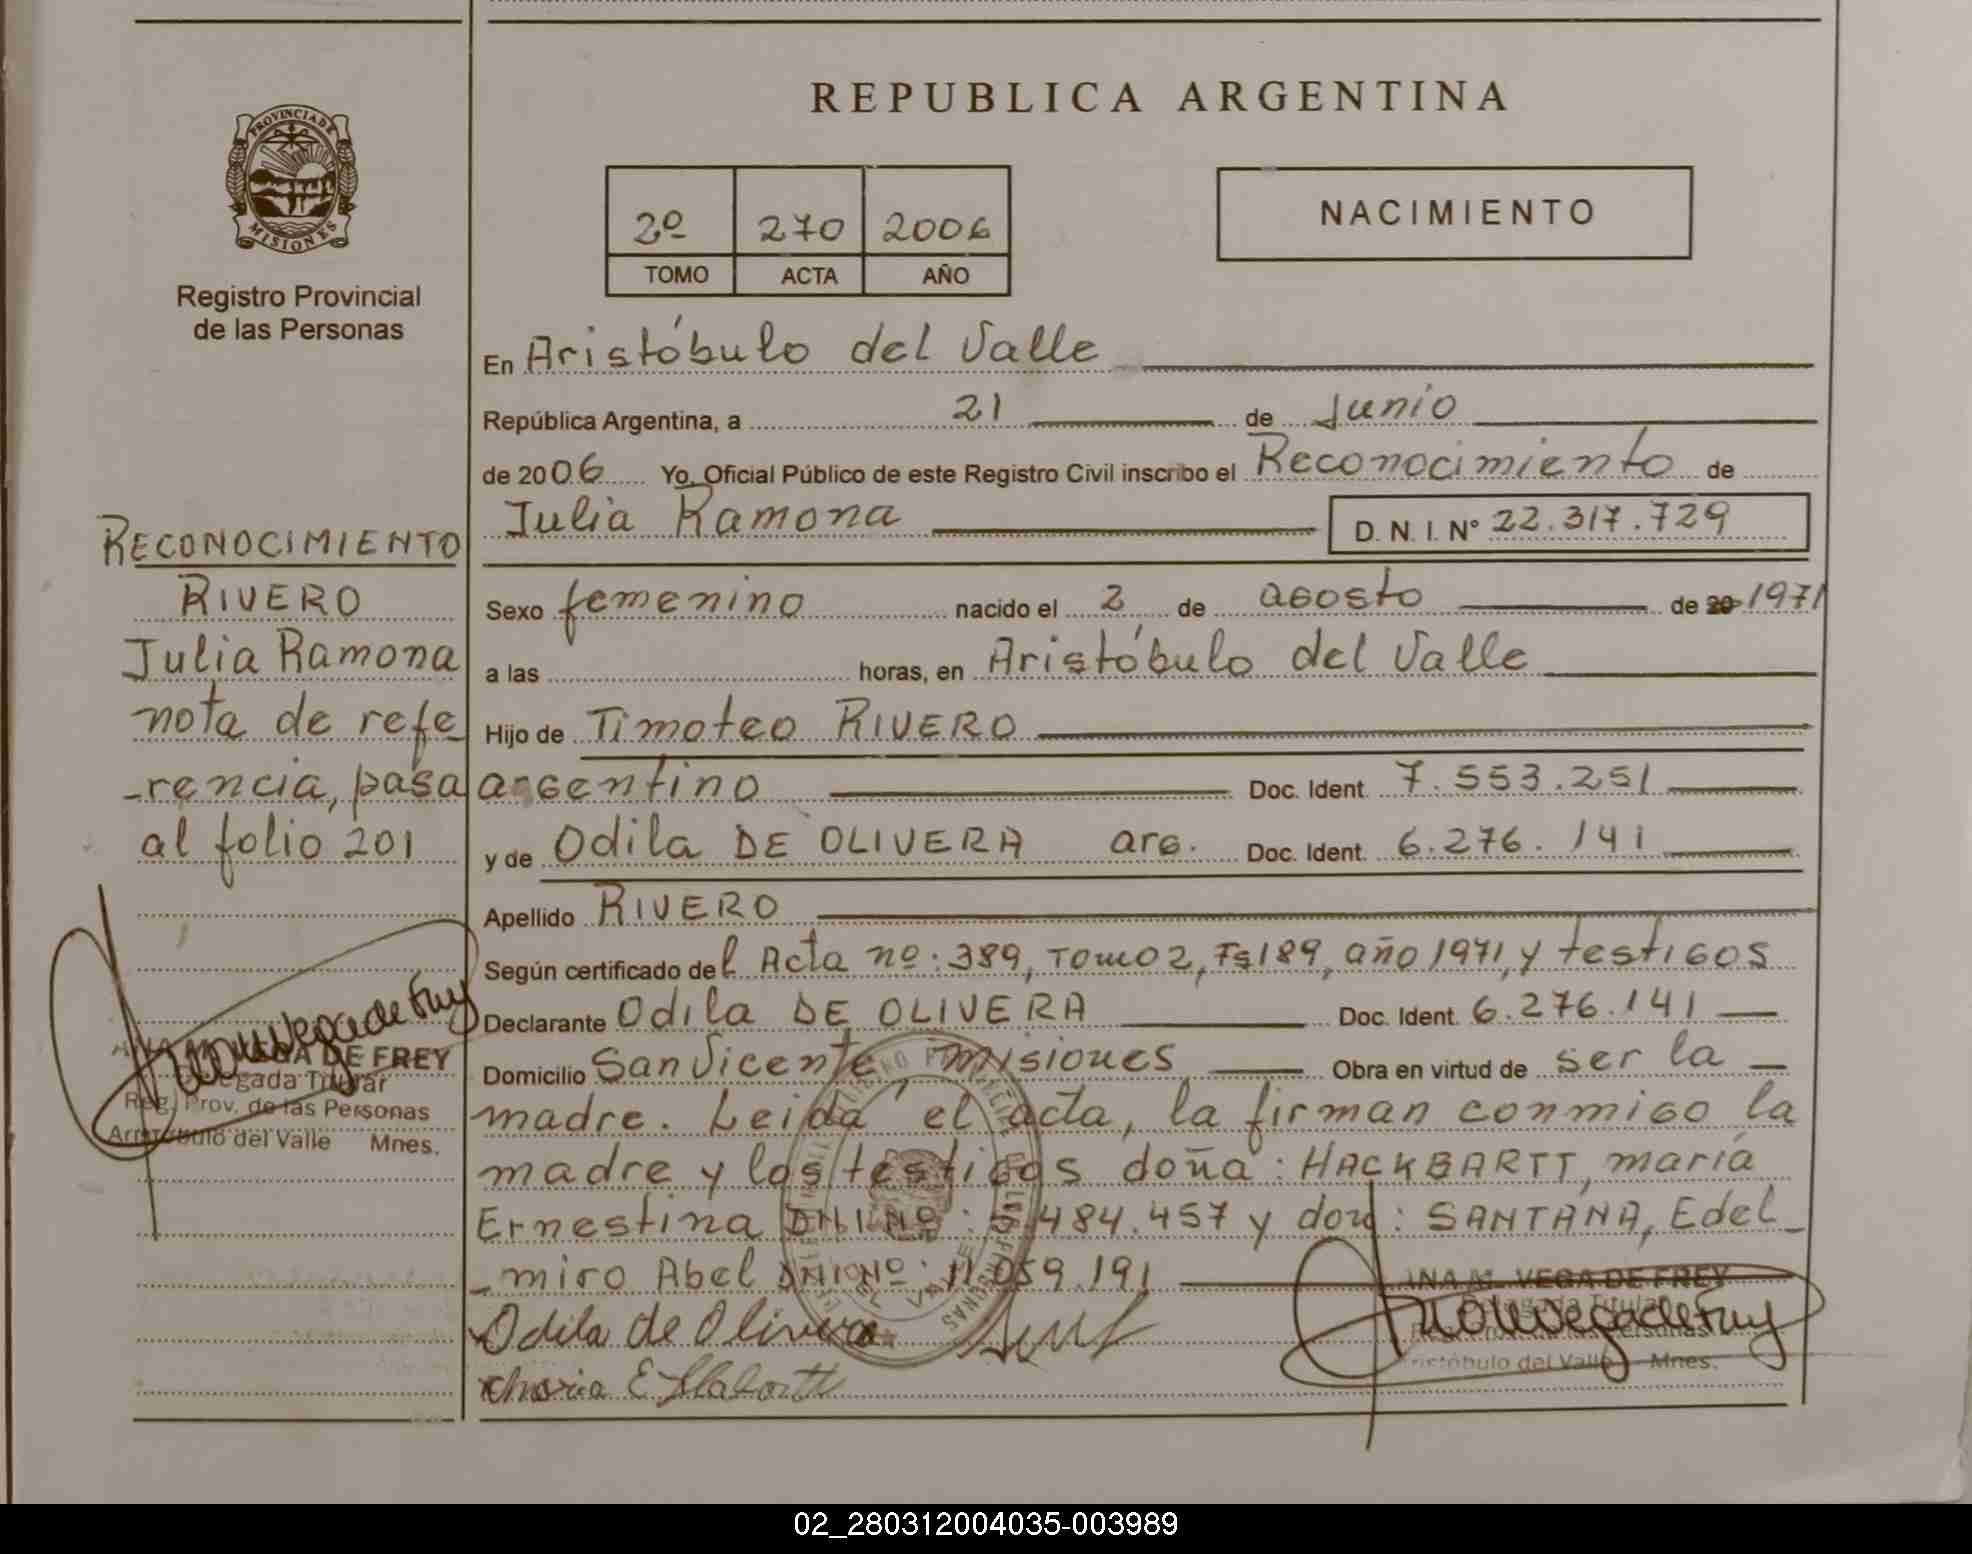 REPUBLICA ARGENTINA
PROVINCIA DE
MISIONES
Registro Provincial
de las Personas
2º 270 2006
TOMO ACTA AÑO
NACIMIENTO
En Aristóbulo del Valle
República Argentina, a 21 de Junio
de 2006 Yo, Oficial Público de este Registro Civil inscribo el Reconocimiento de
Julia Ramona D.N.I. Nº 22.317.729
Sexo femenino nacido el 2 de agosto de 20 1971
a las horas, en Aristóbulo del Valle
Hijo de Timoteo RIVERO
argentino Doc. Ident. 7.553.251
y de Odila DE OLIVERA arg. Doc. Ident. 6.276.141
Apellido RIVERO
Según certificado del Acta nº: 389, Tomo 2, Fs 189, año 1971, y testigos
Declarante Odila DE OLIVERA Doc. Ident. 6.276.141
Domicilio San Vicente Misiones Obra en virtud de ser la
madre. Leida el acta, la firman conmigo la
madre y los testigos doña: HACKBARTT, maría
Ernestina DNI Nº: 5.484.457 y don: SANTANA, Edel
-miro Abel DNI Nº: 11.059.191
Odila de Olivera
RECONOCIMIENTO
RIVERO
Julia Ramona
nota de refe
-rencia, pasa
al folio 201
VEGA DE FREY
Delegada Titular
Reg. Prov. de las Personas
Aristóbulo del Valle Mnes.
INA M. VEGA DE FREY
Delegada Titular
Aristóbulo del Valle Mnes.
02_280312004035-003989